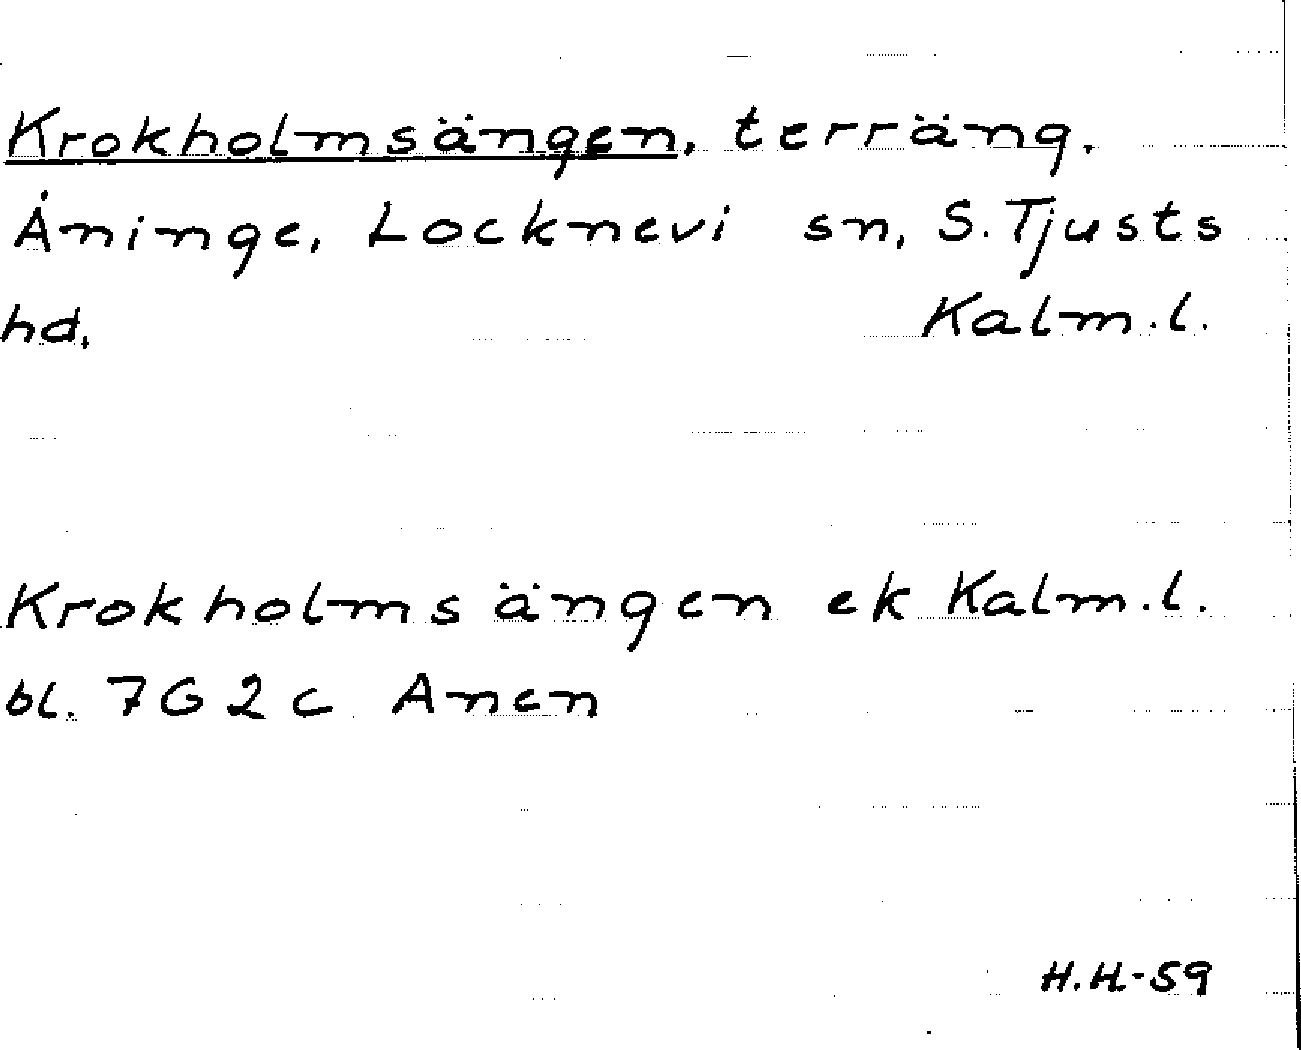 Krokholmsängen, terräng.
Åninge, Locknevi sn, S. Tjusts
hd. Kalm. l.
Krokholmsängen ek Kalm. l.
bl. 7G 2c Anen
H.H-59